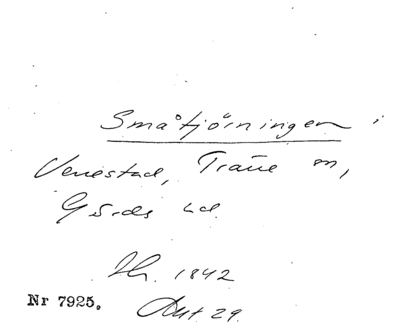 Småtjörningen i
Venestad, Träne sn,
Gärds hd.
Jfr. 1842
Nr 7925. Akt 29.